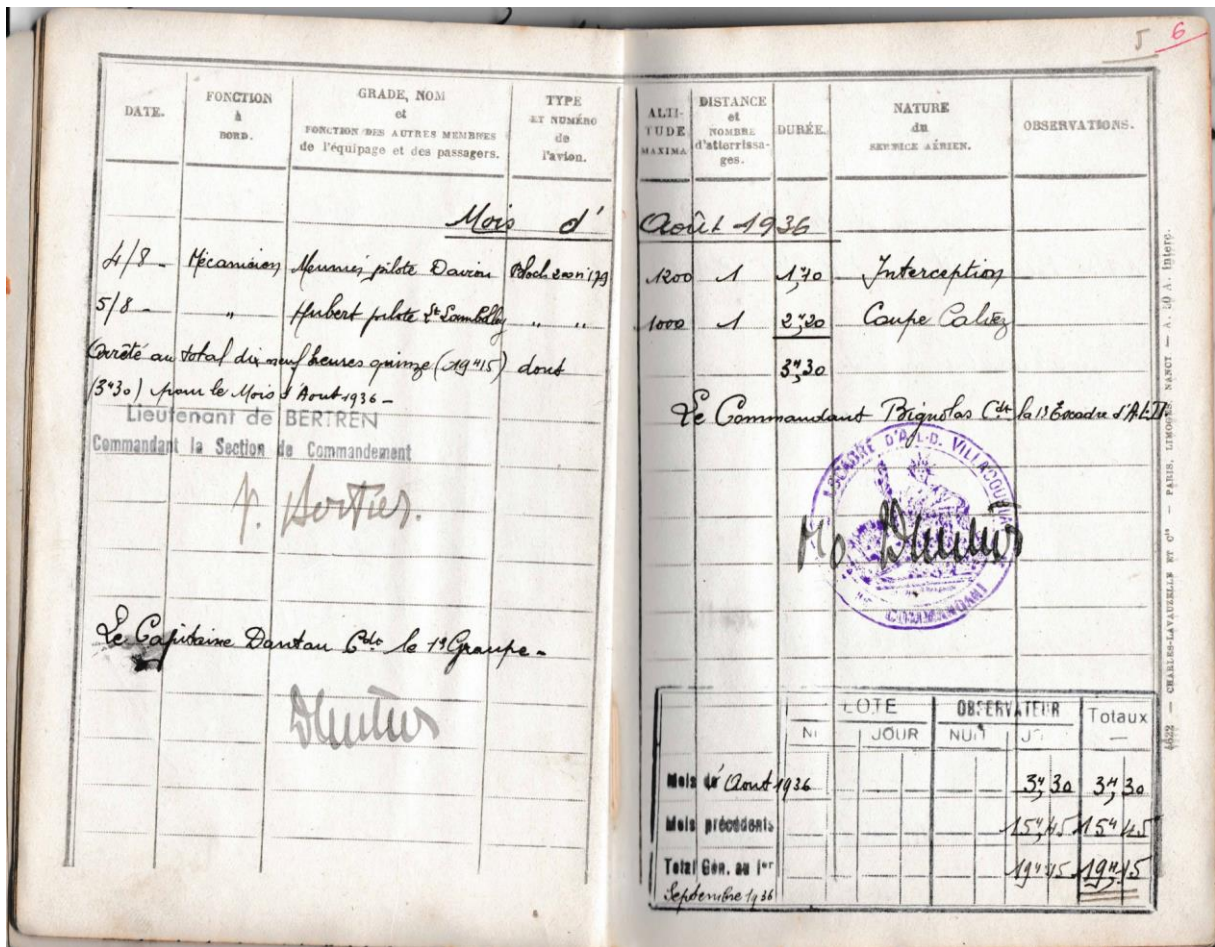 5 6
DATE.
FONCTION
à
BORD.
GRADE, NOM
et
FONCTION DES AUTRES MEMBRES
de l'équipage et des passagers.
TYPE
ET NUMÉRO
de
l'avion.
ALTI-
TUDE
MAXIMA
DISTANCE
et
NOMBRE
d'atterrissa-
ges.
DURÉE.
NATURE
du
SERVICE AÉRIEN.
OBSERVATIONS.
Mois d' Août 1936
4/8 - Mécanicien Meunier pilote Bloch 200 n°179 1200 1 1H,10 Interception
5/8 - " Hubert pilote Lt " " 1000 1 2H,20 Coupe
3H,30
Arrêté au total dix neuf heures quinze (19H15) dont
(3H30) pour le Mois d'Aout 1936 -
Lieutenant de BERTREN
Commandant la Section de Commandement
Le Commandant Bignolas Cdt la 13 Escadre d'A.L.D.
ESCADRE D'A.L.D. VILLACOUBLAY
COMMANDANT
Le Capitaine Dantan Cdt le 1er Groupe -
LOTE OBSERVATEUR Totaux
JOUR NUIT
Mois d' Aout 1936 3H,30 3H,30
Mois précédents 15H,45 15H45
Total Gén. au 1er 19H15 19H,15
Septembre 1936
4622 — CHARLES-LAVAUZELLE ET Cie — PARIS, LIMOGES, NANCY — A. LO A. Interc.